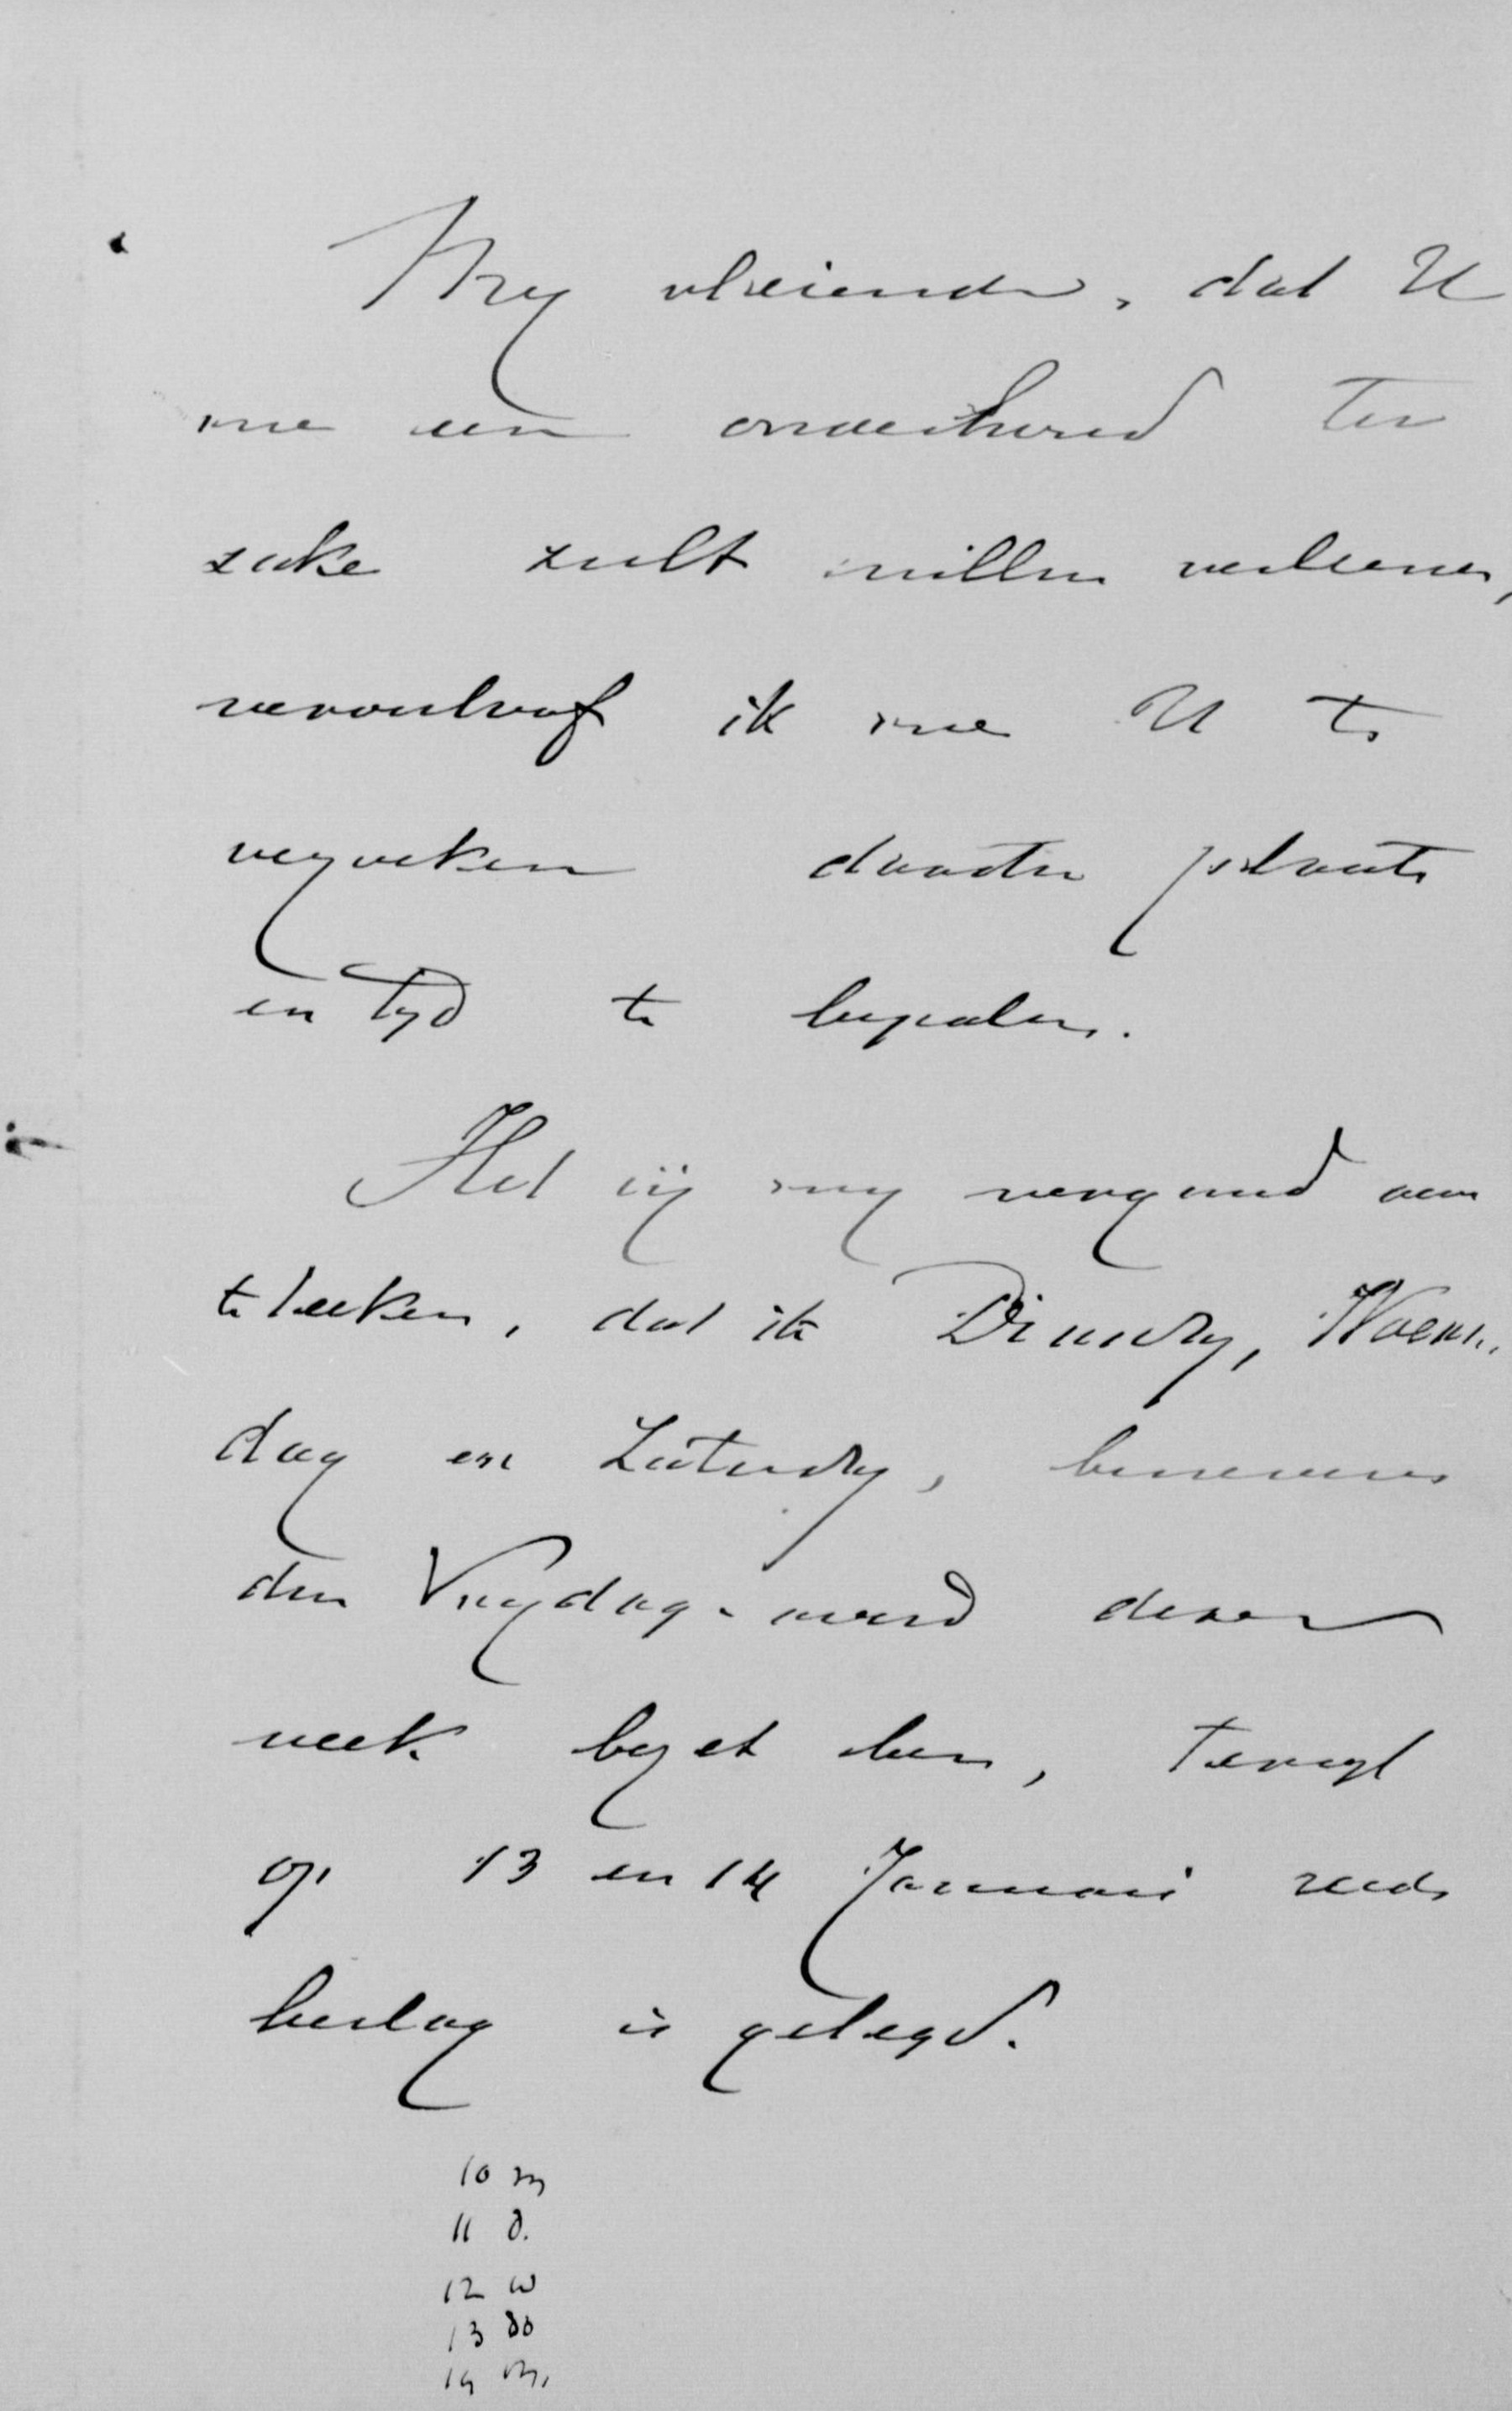 My vleiende, dat U
me een onderhoud ten
zake zult willen verleenen,
veroorloof ik me U te
verzoeken daartoe plaats
en tyd te bepalen.
Het zij my vergund aan
te teeken, dat ik Dinsdag, Woens-
dag en Zaturdag, benevens
den Vrydag-avond dezer
week bezet ben, terwyl
op 13 en 14 Januari reeds
beslag is gelegd.
10 m
11 d.
12 w
13 do
14 v.